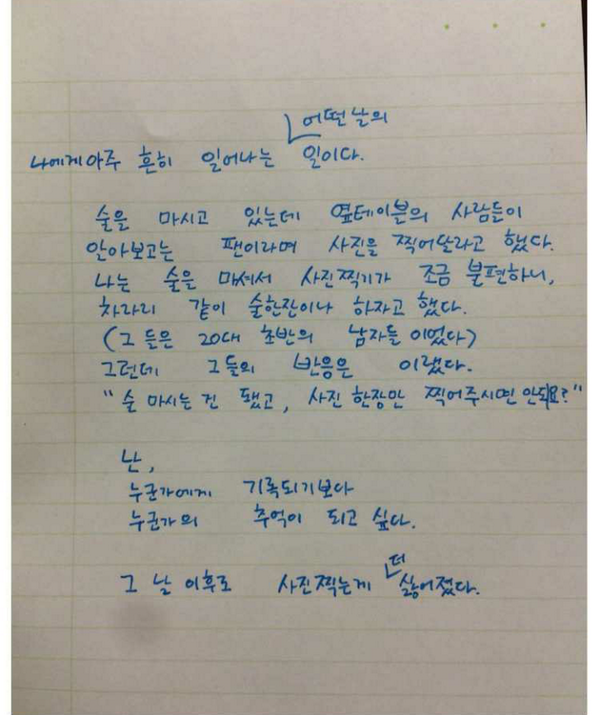 어떤 날의
나에게 아주 흔히 일어나는 일이다.
술을 마시고 있는데 옆테이블의 사람들이
알아보고는 팬이라며 사진을 찍어달라고 했다.
나는 술을 마셔서 사진찍기가 조금 불편하니,
차라리 같이 술한잔이나 하자고 했다.
(그 들은 20대 초반의 남자들 이었다)
그런데 그들의 반응은 이랬다.
"술 마시는 건 됐고, 사진 한장만 찍어주시면 안되요?"
난,
누군가에게 기록되기보다
누군가의 추억이 되고 싶다.
더
그 날 이후로 사진찍는게 싫어졌다.